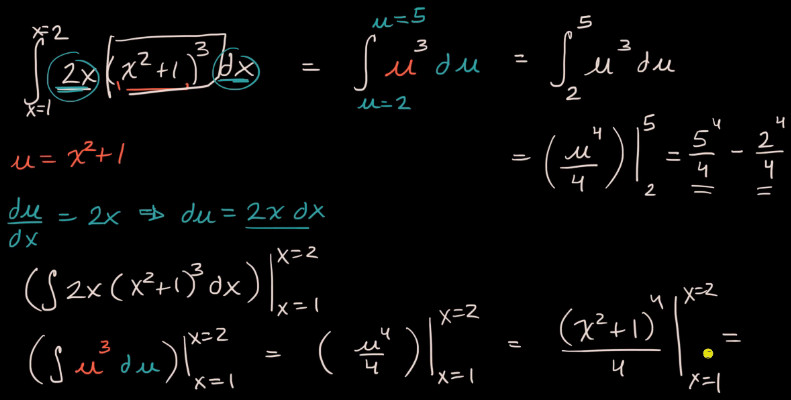 ∫_{x=1}^{x=2} 2x (x²+1)³ dx = ∫_{u=2}^{u=5} u³ du = ∫_2^5 u³ du
= (u⁴/4)|_2^5 = 5⁴/4 - 2⁴/4
u = x²+1
du/dx = 2x ⇒ du = 2x dx
(∫ 2x (x²+1)³ dx)|_{x=1}^{x=2}
(∫ u³ du)|_{x=1}^{x=2} = (u⁴/4)|_{x=1}^{x=2} = (x²+1)⁴/4|_{x=1}^{x=2} =